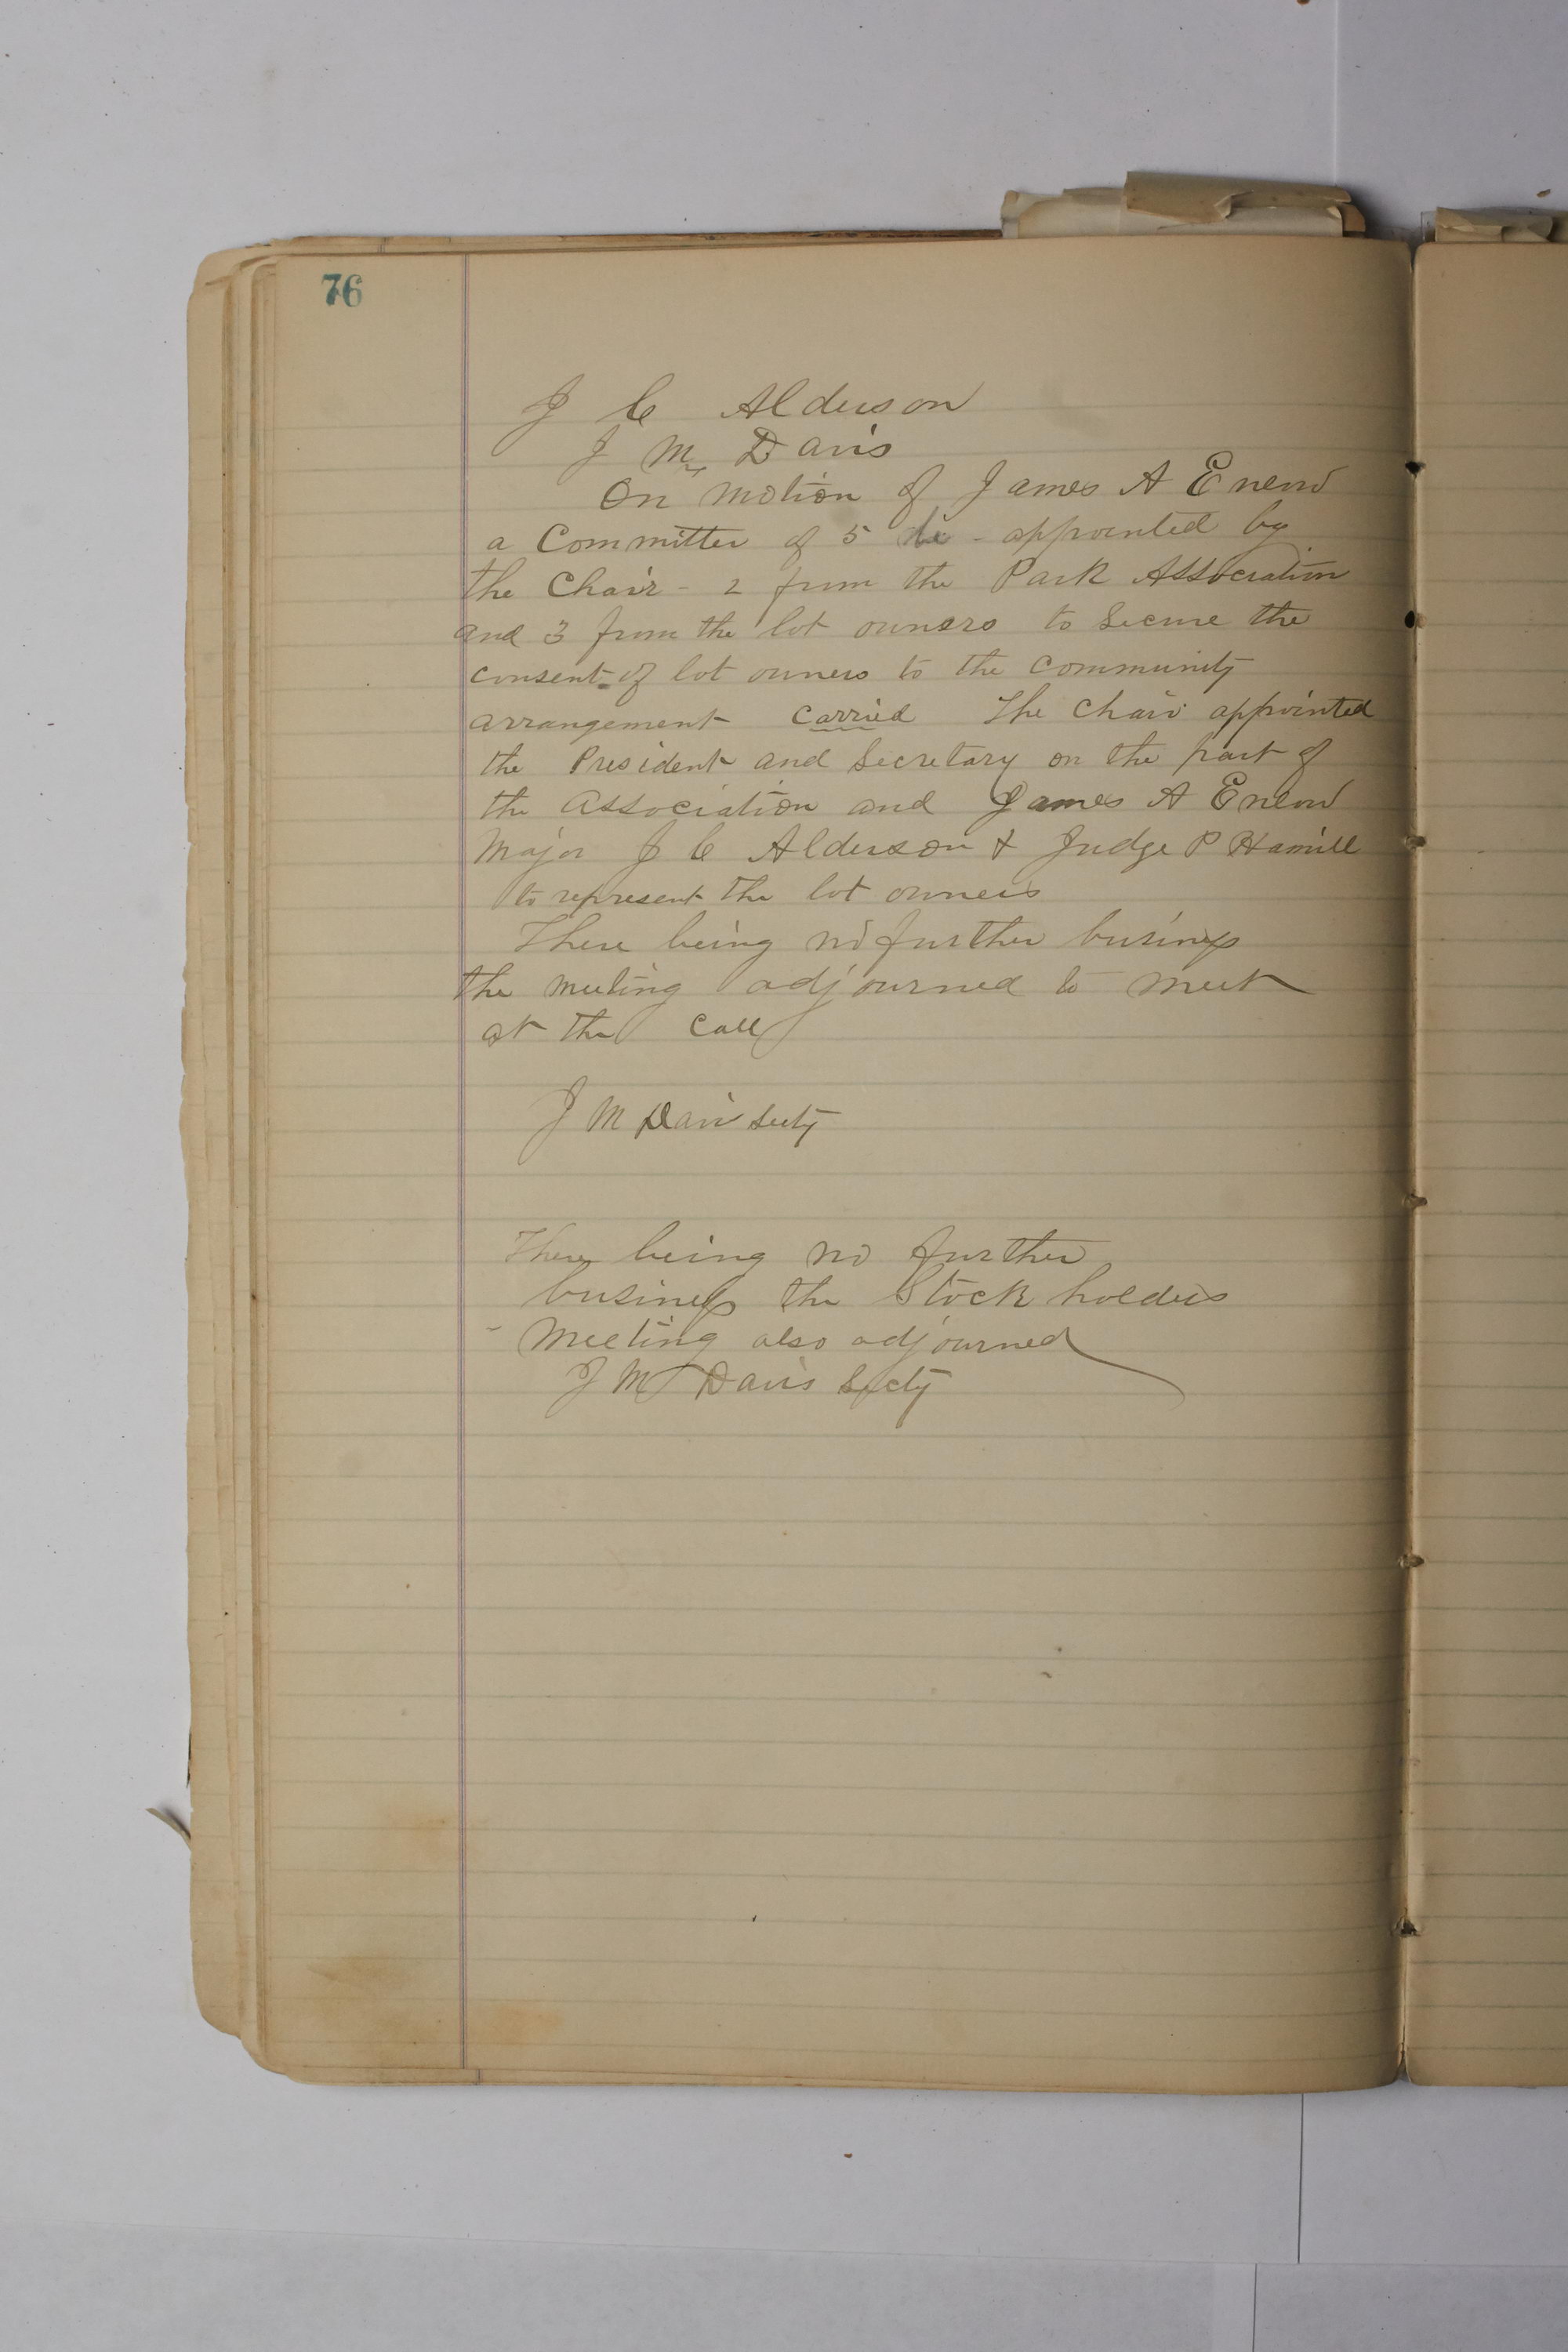 76
J C Alderson
J M Davis
On motion of James A Enlow
a Committee of 5 be - appointed by
the Chair - 2 from the Park Association
and 3 from the lot owners to secure the
consent of lot owners to the community
arrangement carried The chair appointed
the President and Secretary on the part of
the Association and James A Enlow
Major J C Alderson & Judge P Hamill
to represent the lot owners
There being no further business
the meeting adjourned to meet
at the call
J M Davis Secty
There being no further
business the Stock holders
Meeting also adjourned
J M Davis Secty